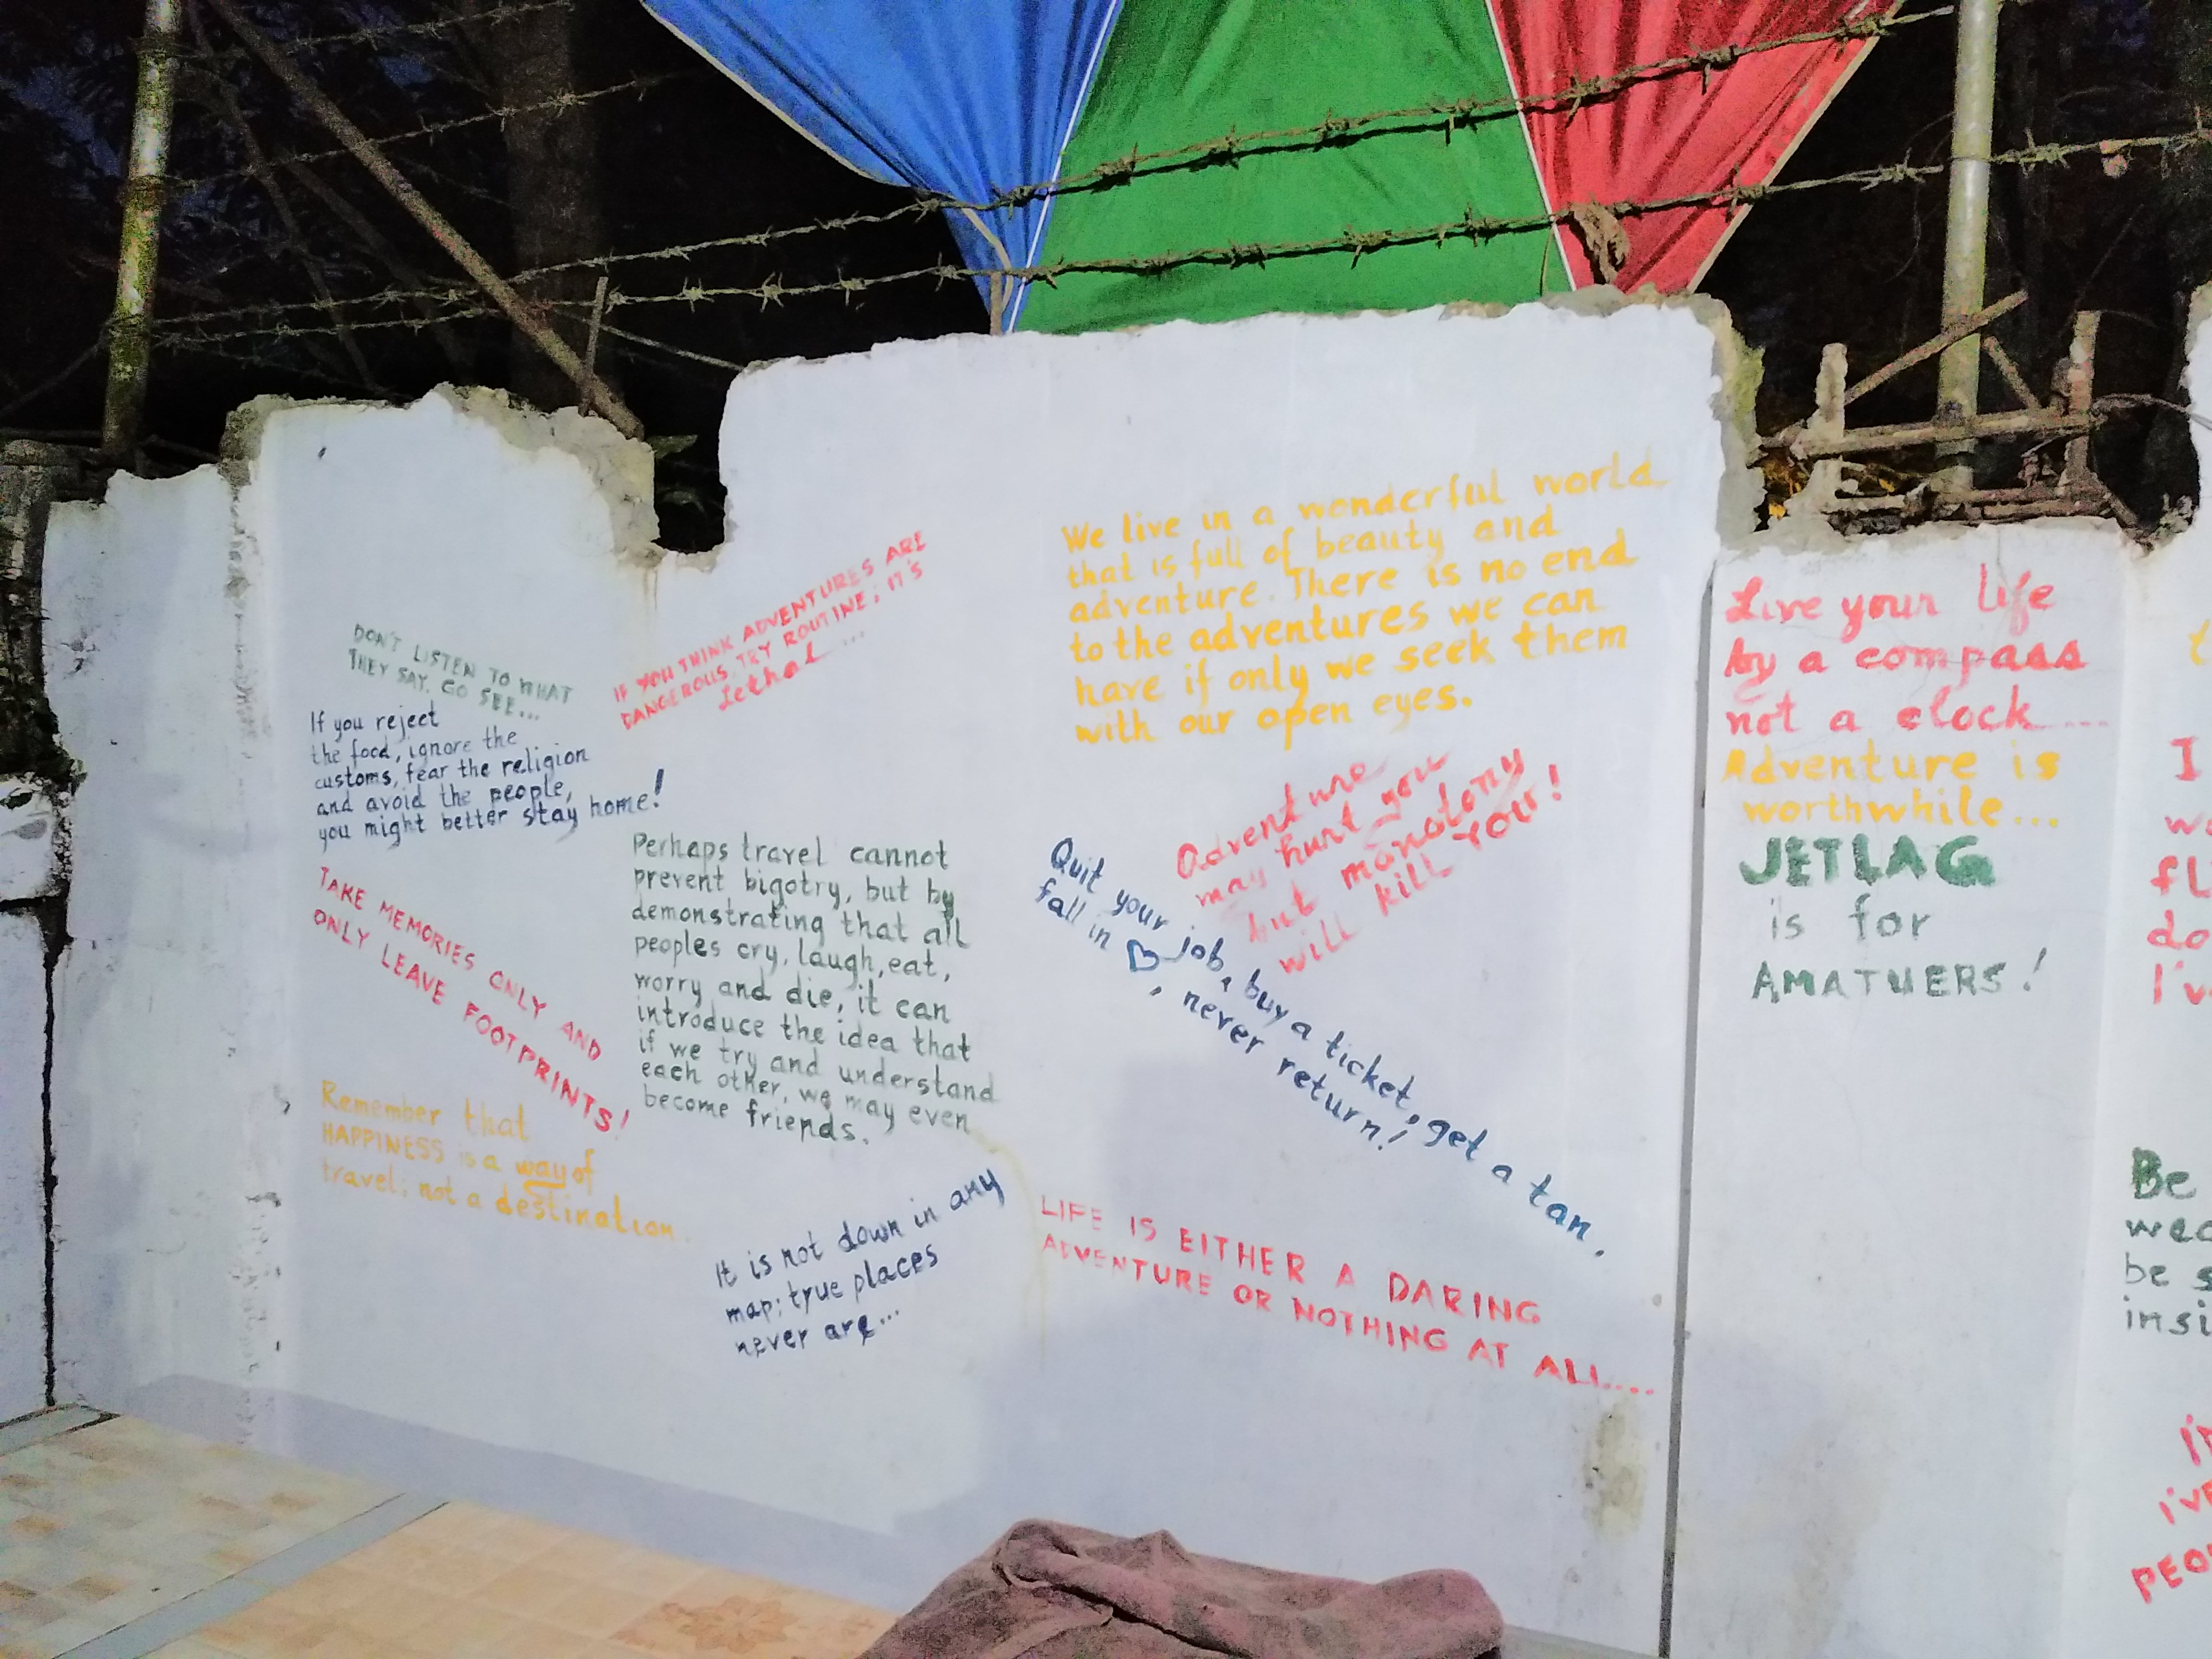 DON'T LISTEN TO WHAT
THEY SAY. GO SEE...
If you reject
the food, ignore the
customs, fear the religion
and avoid the people,
you might better stay home!
TAKE MEMORIES ONLY AND
ONLY LEAVE FOOTPRINTS!
Remember that
HAPPINESS is a way of
travel; not a destination.
IF YOU THINK ADVENTURES ARE
DANGEROUS, TRY ROUTINE; IT'S
Lethal...
Perhaps travel cannot
prevent bigotry, but by
demonstrating that all
peoples cry, laugh, eat,
worry and die, it can
introduce the idea that
if we try and understand
each other, we may even
become friends.
It is not down in any
map; true places
never are...
We live in a wonderful world
that is full of beauty and
adventure. There is no end
to the adventures we can
have if only we seek them
with our open eyes.
Adventure
may hurt you
but monotony
will kill You!
Quit your job, buy a ticket, get a tan,
fall in ♡, never return!
LIFE IS EITHER A DARING
ADVENTURE OR NOTHING AT ALL....
Live your life
by a compass
not a clock....
Adventure is
worthwhile...
JETLAG
is for
AMATUERS!
I
Be
be